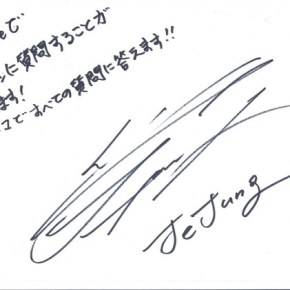 eで
に質問することが
ます!
ですべての質問に答えます!!
JeJung